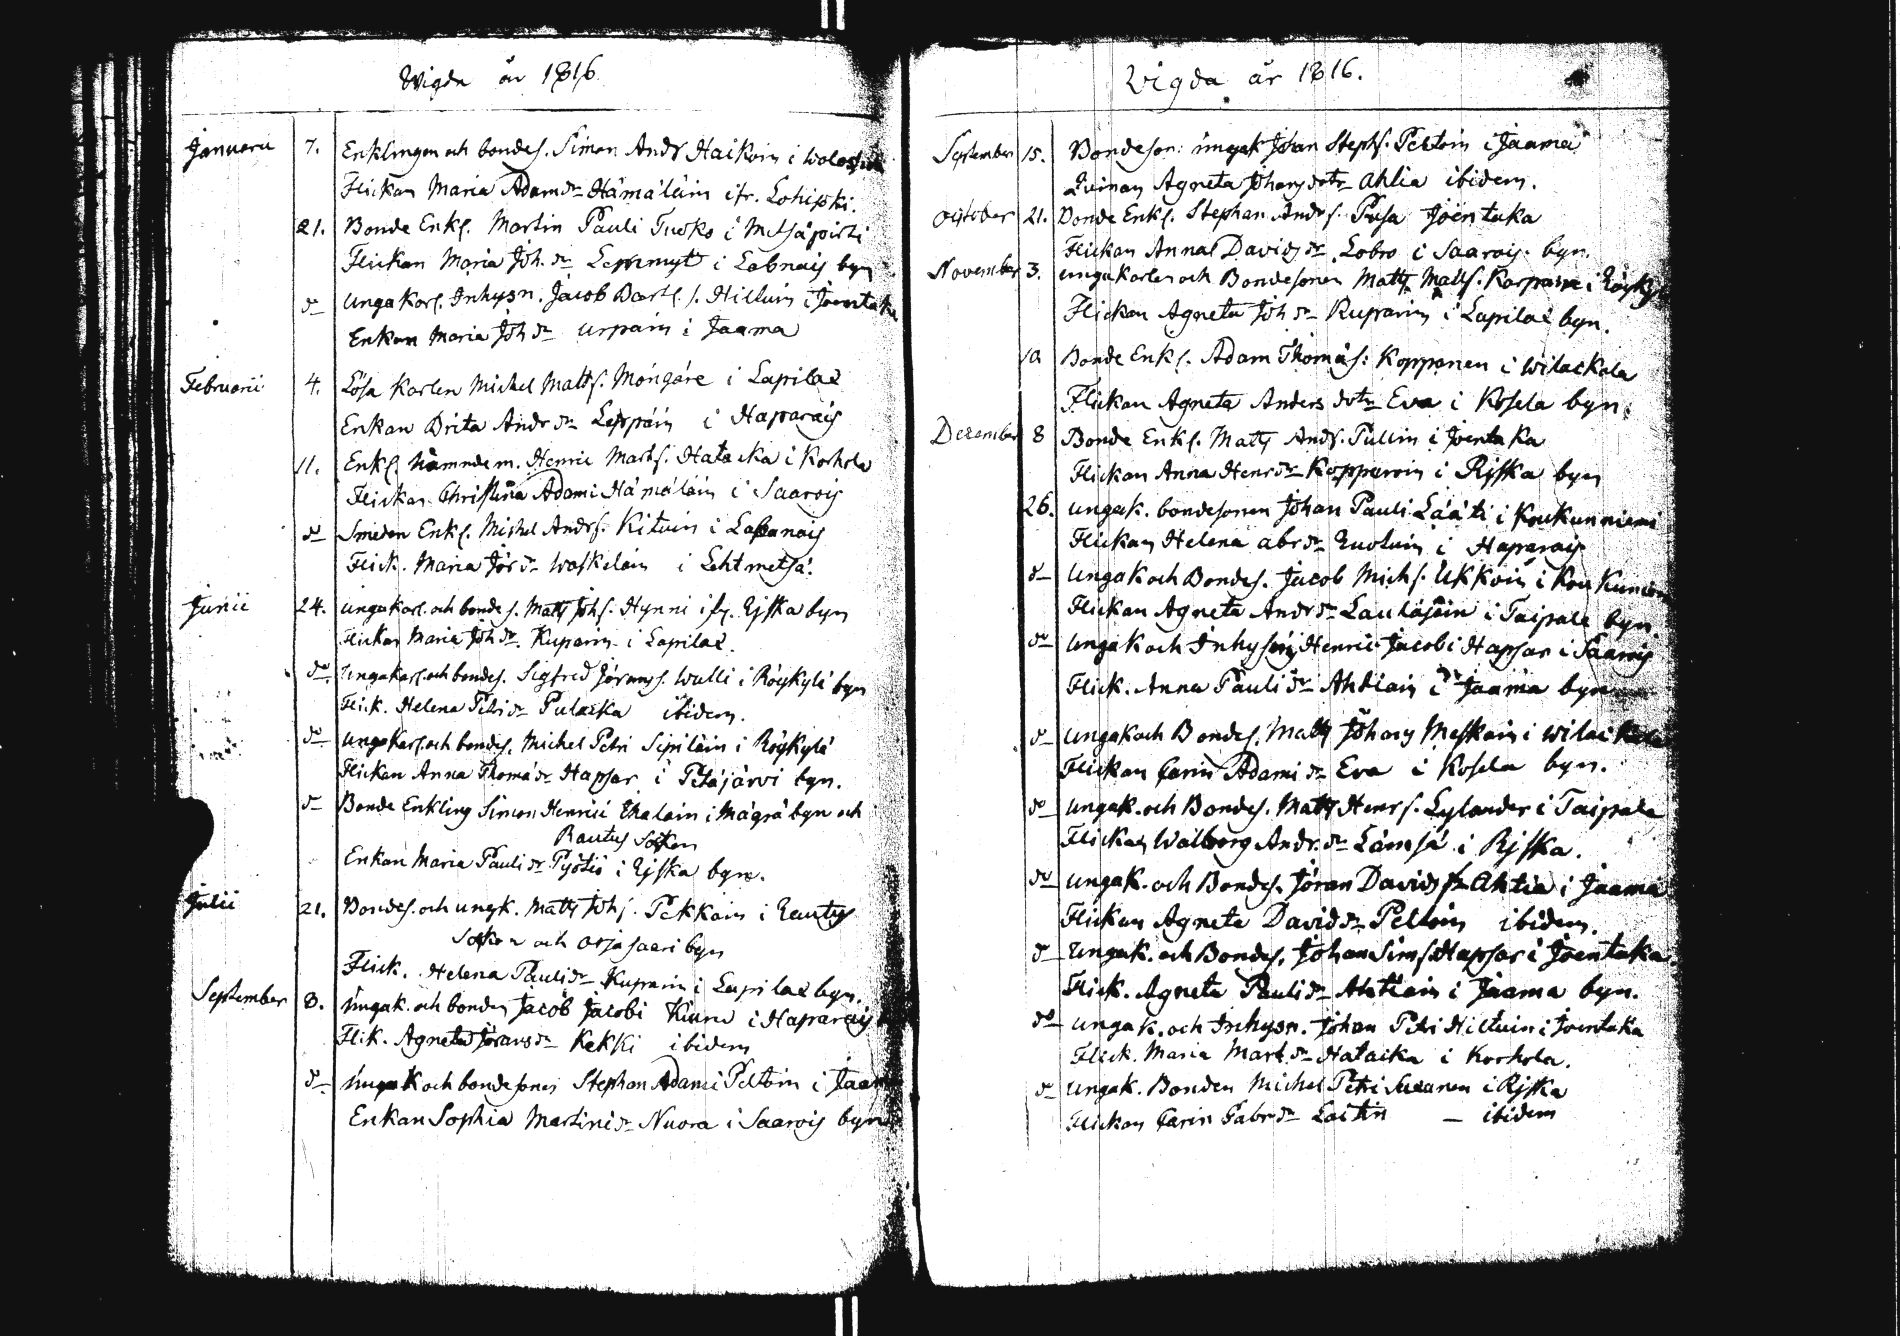 Wigda år 1816.
Januarii 7. Enklingen och bondes. Simon Andr Haikoin i
Flickan Maria Adamdr Hämäläin i fr. Lohipki.
21. Bonde Enkl. Martin Pauli Tusko i Metsäpirti
Flickan Maria Joh. dr i Labnais byn
do Ungakarl. Inhysn. Jacob Bartl. s. Hiltuin i Joentaka
Enkan Maria Joh dr Urpain i Jaama
Februarii 4. Lösa Karlen Michel Matts. Möngäre i Lapilax
Enkan Brita Andr dr Leppäin i Haparais
11. Enkl. Nämndem. Henric Marts. Hataika i Korhola
Flickan Christina Adami Hämäläin i Saarois
do Smeden Enkl. Michel Andrs. Kituin i Labanais
Flick. Maria Jör dr Waskelain i Lehtmetsä.
Junii 24. ungakarl. och bondes. Matts Johs. Hynni i Rjska byn
Flickan Maria Joh dr. Kuparin i Lapilax.
do Ungakarl. och bondes. Sigfred Jörans. Walli i Röykylä byn
Flick. Helena Petri dr Pulaika ibidem.
do Ungakarl. och bondes. Michel Petri Sipiläin i Röykylä
Flickan Anna Thomä dr Hapsar i Petäjärvi byn.
do Bonde Enkling Simon Henrici Ihalain i Mägrä byn och
Rautus Sokn
Enkan Maria Pauli dr Pyötiö i Rjska byn.
Julii 21. Bondes. och ungk. Matts Johs. Pekkain i Rautus
Sokn och Orjasaari byn
Flick. Helena Pauli dr Kuparin i Lapilax byn.
September 8. Ungak. och bonden Jacob Jacobi Kiuru i Haparais
Flik. Agneta Jörans dr Kekki ibidem
do Ungak och bondesonen Stephan Adami Peltoin i Jaama
Enkan Sophia Martini dr Nuora i Saarois byn
Wigda år 1816.
September 15. Bondeson. ungk Johan Stephs. Peltoin i Jaama
Qvinan Agneta Johans dotr Ahtia ibidem.
October 21. Bonde Enkl. Stephan Andrs. Pusa Joentaka
Flickan Anna Davids dr Lobro i Saarois byn.
November 3. ungakarlen och Bondesonen Matts Matts. Karpain i Röyky
Flickan Agneta Joh dr Kuparin i Lapilax byn.
10 Bonde Enkl. Adam Thomäs: Kopponen i Wilackala
Flickan Agneta Anders dotr Eva i Kosela byn.
December 8 Bonde Enkl. Matts Ands. Pullin i Joentaka
Flickan Anna Henr dr Kopparoin i Rjska byn
26. ungak. bondesonen Johan Pauli Lääti i Koukunniemi
Flickan Helena abr dr Ruotuin i Haparais
do Ungak och Bondes. Jacob Michs. Ukkoin i Koukuniem
Flickan Agneta Andr dr Laulajain i Taipale byn.
do Ungak och Inhysing Henric Jacobi Hapsar i Saarois
Flick. Anna Pauli dr Ahtiain i Jaama byn
do Ungak och Bondes. Matts Johans Meskain i Wilackala
Flickan Carin Adami dr Eva i Kosela byn.
do Ungak. och Bondes. Matts Henrs. Lylander i Taipale
Flickan Walborg Andr. dr Lämsä i Rjska.
do Ungak. och Bondes. Jöran Davids sn Ahtia i Jaama
Flickan Agneta David dr Peltoin ibidem.
do Ungak. och Bondes. Johan Sims. Hapsar i Joentaka.
Flick. Agneta Pauli dr Ahtiain i Jaama byn.
do Ungak. och Inhysn. Johan Petri Hiltuin i Joentaka
Flick. Maria Mart. dr Hataika i Korhola.
do Ungak. Bonden Michel Petri Suxanen i Rjska
Flickan Carin Gabr dr Laitin — ibidem